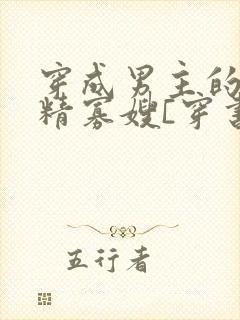 穿成男主的
精寡嫂[穿书
五行者